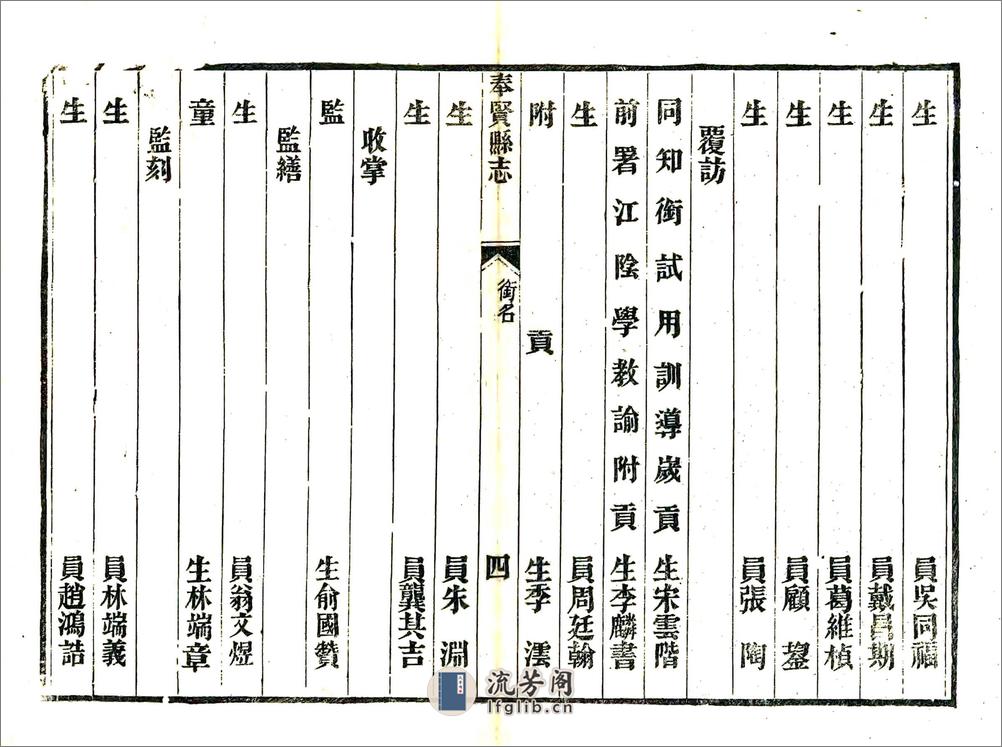 生員吳同福
生員戴昌期
生員葛維楨
生員顧鋆
生員張陶
覆訪
同知銜試用訓導歲貢生宋雲階
前署江陰學教諭附貢生李麟書
生員周廷翰
附貢生季澐
奉賢縣志 銜名 四
生員朱淵
生員龔其吉
收掌
監生俞國贊
監繕
生員翁文煜
童生林端章
監刻
生員林端義
生員趙鴻誥
流芳阁
lfglib.cn